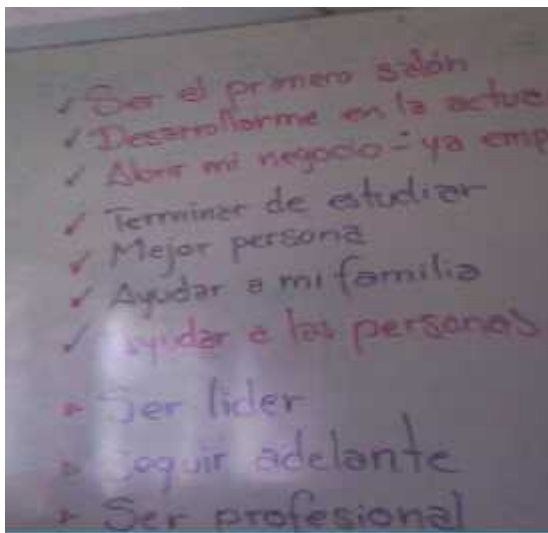 ✓ Ser el primero salón
✓ Desarrollarme en la actua
✓ Abrir mi negocio - ya emp
✓ Terminar de estudiar
✓ Mejor persona
✓ Ayudar a mi familia
✓ Ayudar a las personas
Ser lider
Seguir adelante
Ser profesional